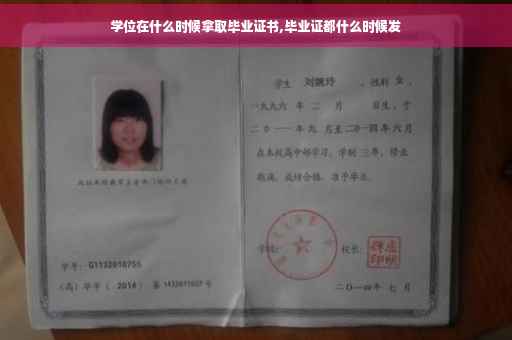 学位在什么时候拿取毕业证书,毕业证都什么时候发
学生 刘婉玲 ,性别 女 ,
一九九六 年 二 月 日生,于
二〇一一 年 九 月至 二〇一四 年 六 月
在本校高中部学习,学制 三 年,修业
期满,成绩合格,准予毕业。
学校: 校长:
学号: G1132010755
(高)毕字( 2014 )第 1432011027 号
二〇一四年 七 月